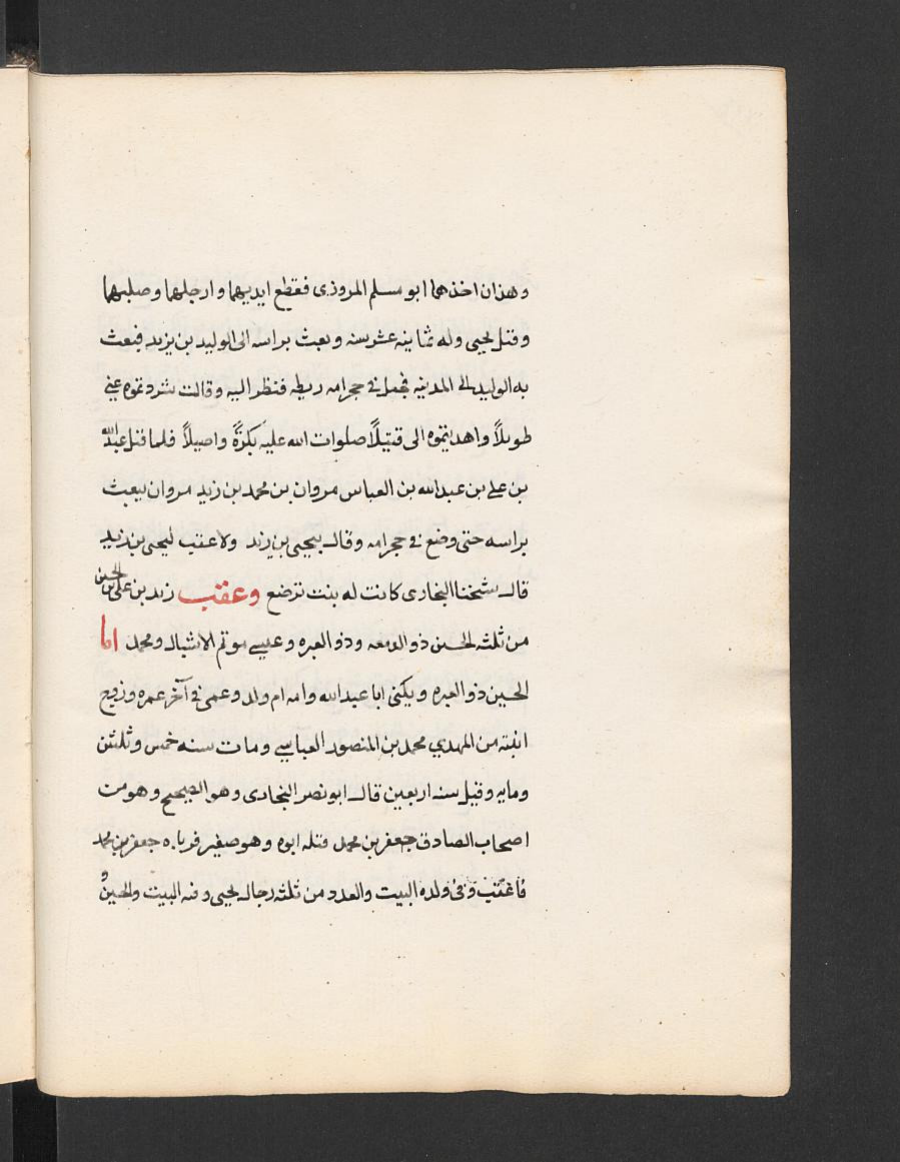 وهذان اخذهما ابو مسلم المروزى فقطع ايديهما وارجلهما وصلبهما
وقتل يحيى وله ثمانيه عشر سنه وبعث براسه الى الوليد بن يزيد فبعث
به الوليد الى المدينه فجعل في حجر امه ريطه فنظر اليه وقالت شردتموه عنى
طويلاً واهديتموه الى قتيلاً صلوات الله عليه بكرةً واصيلاً فلما قتل عبدالله
بن على بن عبدالله بن العباس مروان بن محمد بن مروان يبعث
براسه حتى وضع في حجر امه وقال يحيى بن زيد ولا عقب ليحيى بن زيد
قال شيخنا البخارى كانت له بنت ترضع وعقب زيد بن على بن الحسين
من ثلثه الحسين ذو الدمعه وذو العبره وعيسى موتم الاشبال ومحمد اما
الحسين ذو العبره ويكنى ابا عبدالله وامه ام ولد وعمى في آخر عمره وزوج
ابنته من المهدي محمد بن المنصور العباسي ومات سنه خمس وثلثين
ومايه وقيل سنه اربعين قال ابو نصر البخارى وهو الصحيح وهو من
اصحاب الصادق جعفر بن محمد قتله ابوه وهو صغير فرباه جعفر بن محمد
فاعقب وفى ولده البيت والعدد من ثلثه رجال يحيى وفيه البيت والحسين